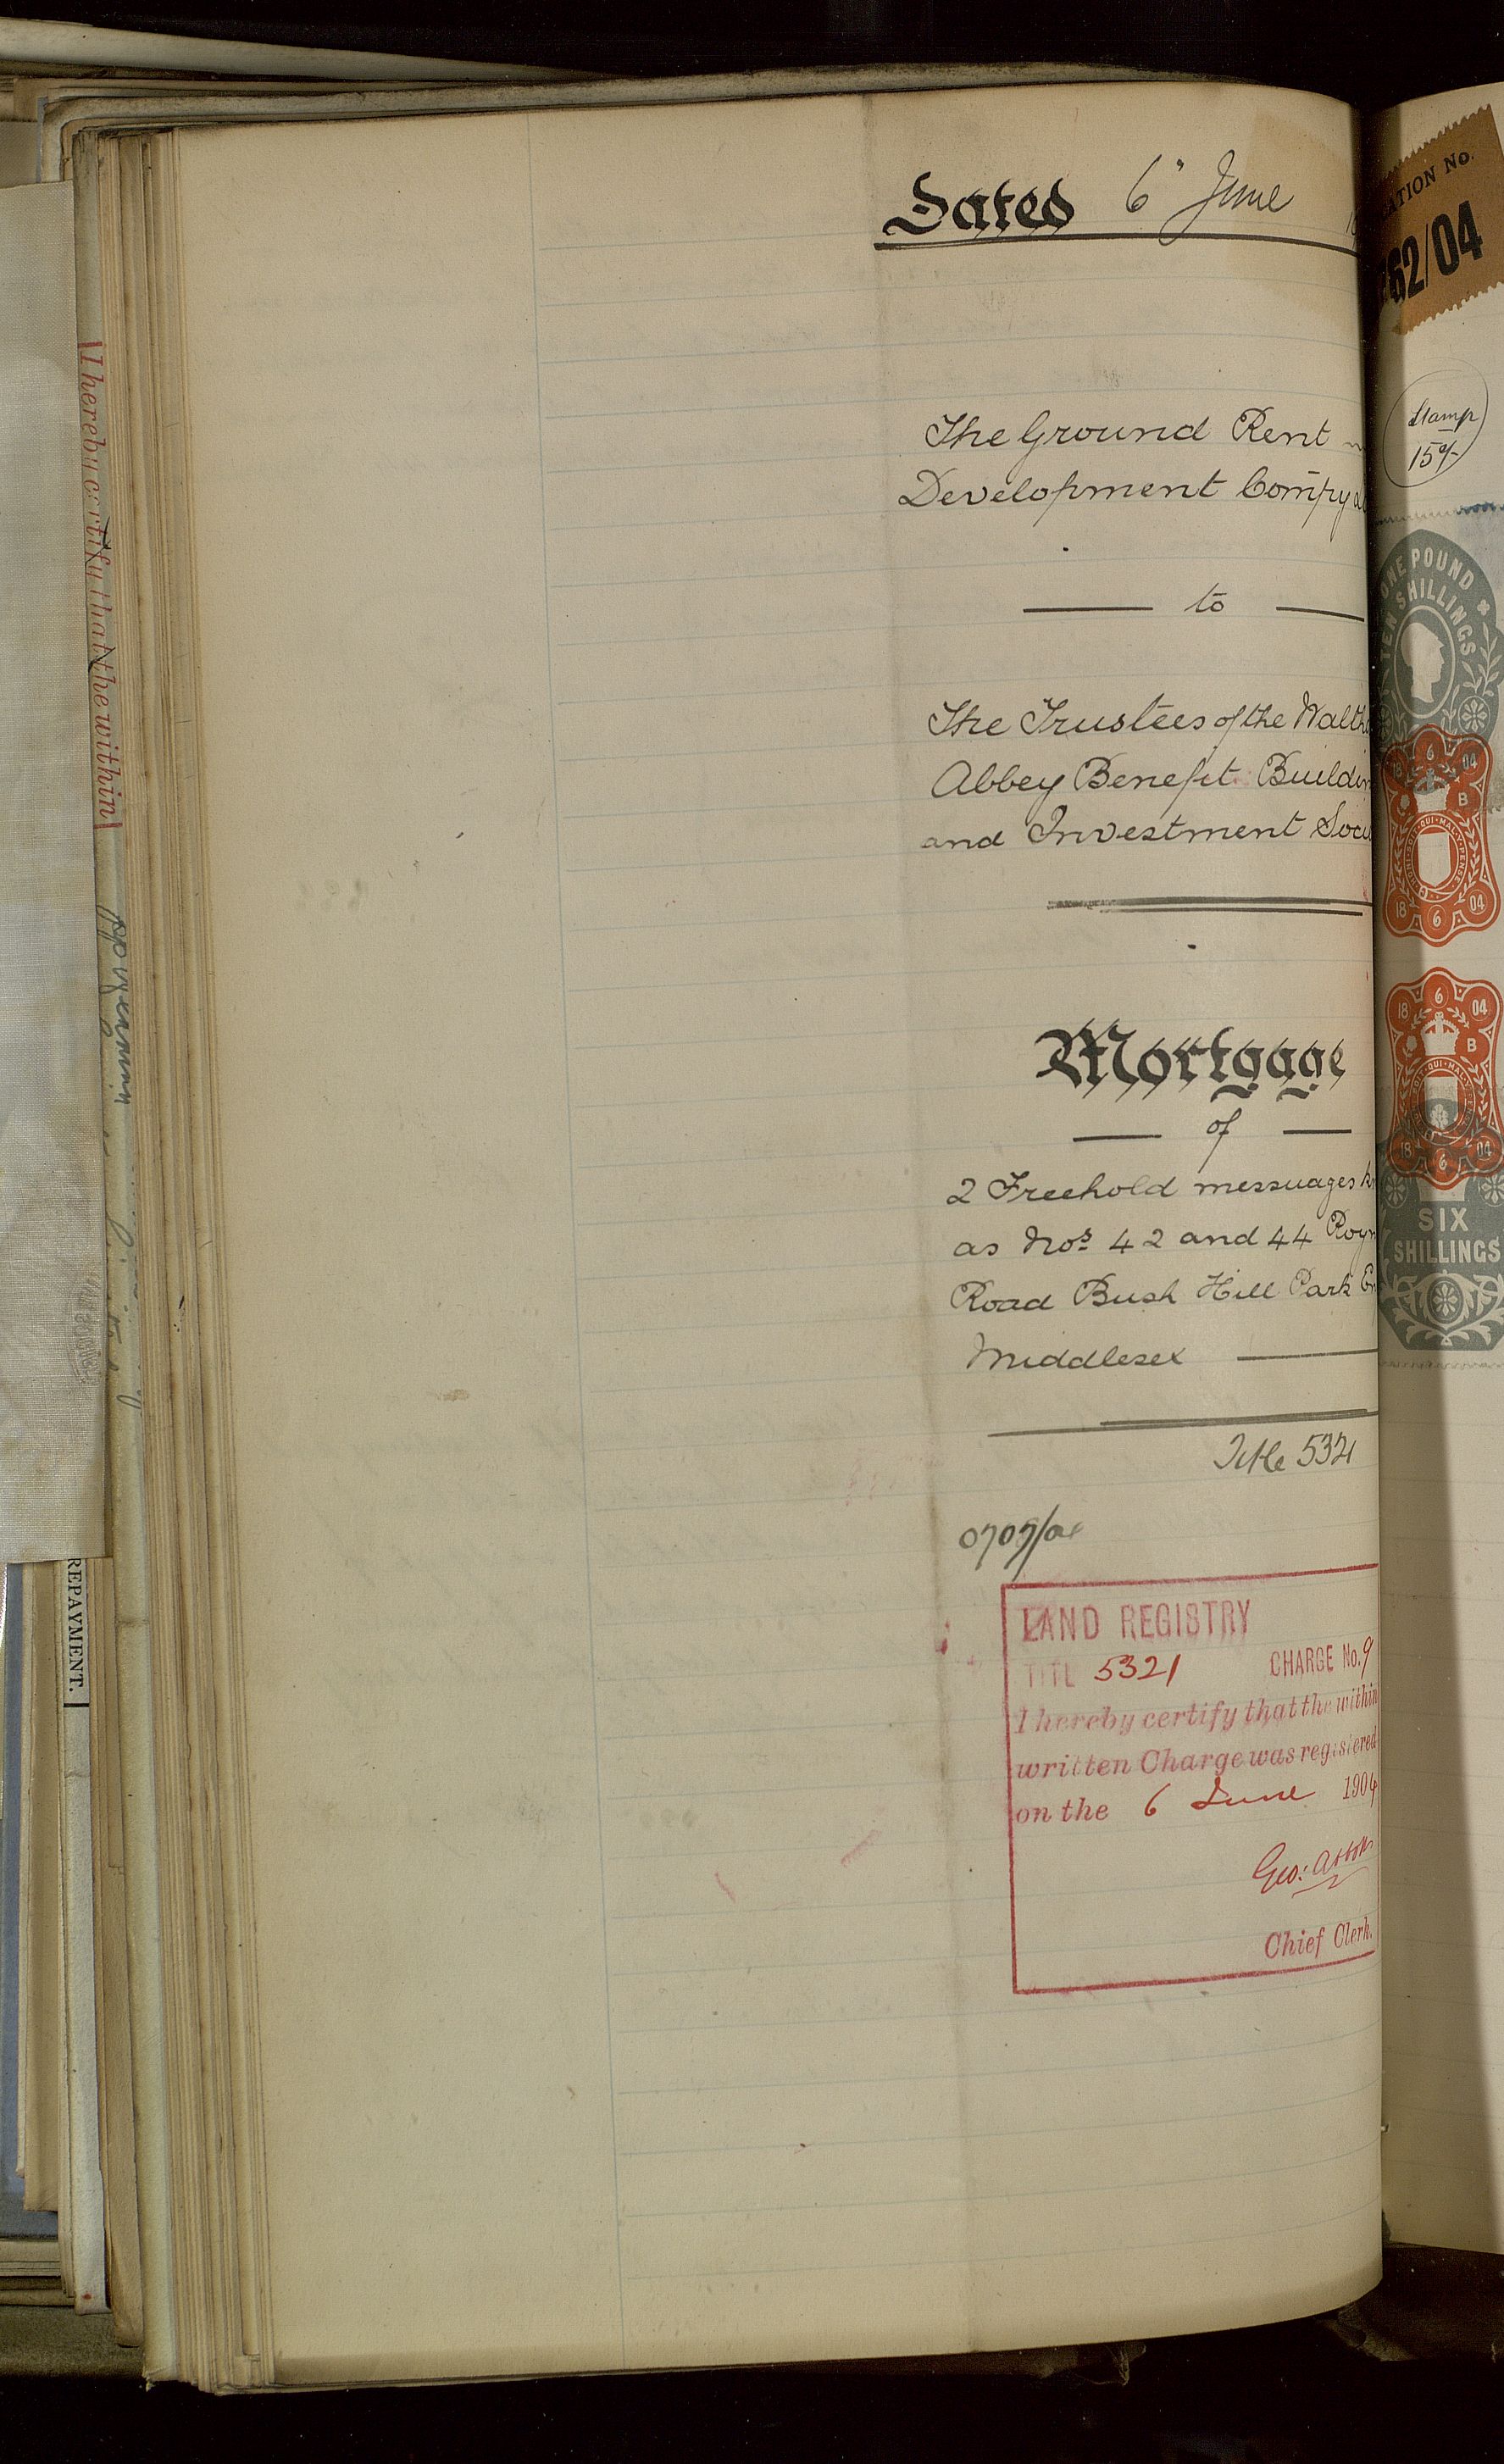 Dated 6" June
The Ground Rent
Development Compy
to
The Trustees of the Walth
Abbey Benefit Buildin
and Investment Soci
Mortgage
of
2 Freehold messuages k
as Nos 42 and 44 Roy
Road Bush Hill Park En
Middlesex
Title 5321
LAND REGISTRY
TITL 5321 CHARGE No. 9
I hereby certify that the within
written Charge was registered
on the 6 June 1904
Geo:
Chief Clerk.
ATION No.
62/04
Stamp
15/-
ONE POUND
TEN SHILLINGS
18 6 04
B
HONI·SOIT·QUI·MAL·Y·PENSE
18 6 04
18 6 04
B
18 6 04
SIX
SHILLINGS
I hereby certify that the within
REPAYMENT.